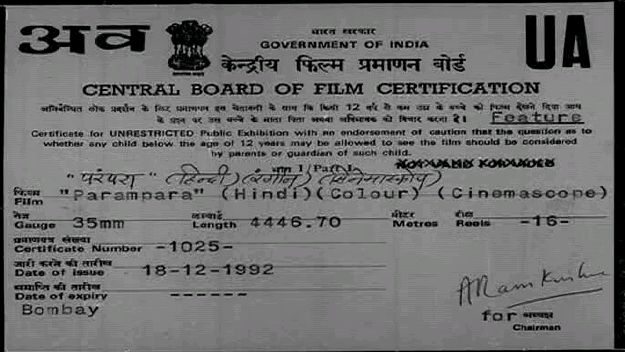 अव
भारत सरकार
GOVERNMENT OF INDIA
UA
केन्द्रीय फिल्म प्रमाणन बोर्ड
CENTRAL BOARD OF FILM CERTIFICATION
अनिर्बन्धित लोक प्रदर्शन के लिए प्रमाणपत्र इस चेतावनी के साथ कि किसी 12 वर्ष से कम उम्र के बच्चे को फिल्म देखने दिया जाय
के प्रश्न पर उस बच्चे के माता पिता अथवा अभिभावक को विचार करना है।
Feature
Certificate for UNRESTRICTED Public Exhibition with an endorsement of caution that the question as to
whether any child below the age of 12 years may be allowed to see the film should be considered
by parents or guardian of such child.
भाग I/Part I
"परंपरा" (हिन्दी) (रंगीन) (सिनेमास्कोप)
फिल्म
Film "Parampara" (Hindi) (Colour) (Cinemascope)
गेज लम्बाई मीटर रील
Gauge 35mm Length 4446.70 Metres Reels -16-
प्रमाणपत्र संख्या
Certificate Number -1025-
जारी करने की तारीख
Date of issue 18-12-1992
समाप्ति की तारीख
Date of expiry ------
Bombay
for अध्यक्ष
Chairman